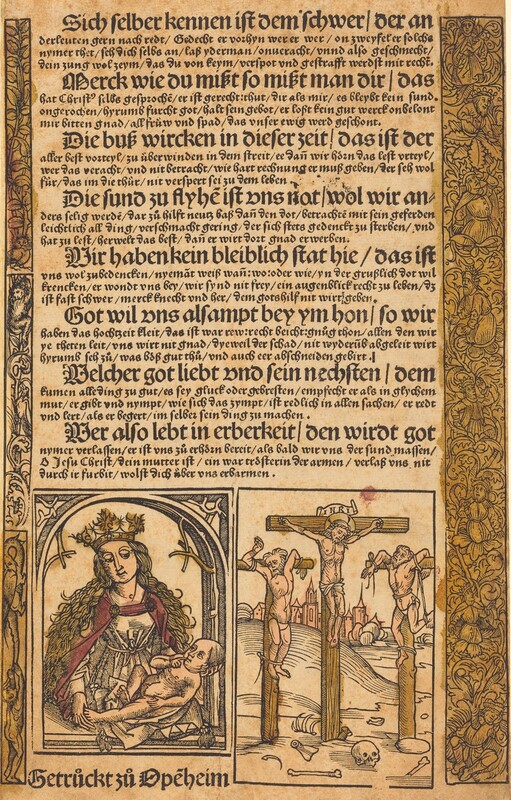 Sich selber kennen ist dem schwer/ der an
derleuten gern nach redt/ Gedecht er vorhyn wer er wer/ on zweyfel er solchs
nymer thet/ seh dich selbs an/ laß yderman/ onueracht/ vnnd also geschmecht/
dein zung wol zeym/ das du von keym/ verspot vnd gestrafft werdst mit recht.
Merck wie du mißt so mißt man dir/ das
hat Christ⁹ selbs gesproche/ er ist gerecht: thut/ dir als mir/ es bleybt kein sund.
ongerochen/ hyrumb furcht got/ halt sein gebot/ er lost kein gut werck onbelont
mir bitten gnad/ all früw vnd spad/ das vnser ewig werd geschont.
Die buß wircken in dieser zeit/ das ist der
aller best vorteyl/ zü überwinden in dem streit/ ee dañ wir hörn das lest vrteyl/
wer das veracht/ vnd nit betracht/ wie hart rechnung er muß geben/ der seh wol
für/ das im die thür/ nit verspert sei zu dem leben.
Die sund zu flyhē ist vns not/ wol wir an⸗
ders selig werdē/ dar zů hilft neutz baß dañ den dot/ betrachtē mit sein geferden
leichtlich all ding/ verschmacht gering/ der sich stets gedenckt zu sterben/ vnd
hat zu lest/ herwelt das best/ dañ er wirt dort gnad erwerben.
Wir haben kein bleiblich stat hie/ das ist
vns wol zubedencken/ nyemāt weiß wañ: wo: oder wie/ yn der grußlich dot wil
krencken/ er wondt vns bey/ wir synd nit frey/ ein augenblick recht zu leben/ dz
ist fast schwer/ merck knecht vnd her/ dem gots hilf nit wirt geben.
Got wil vns alsampt bey ym hon/ so wir
haben das hochtzeit kleit/ das ist war rew: recht beicht: gnüg thon/ allen den wir
ye theten leit/ vns wirt nit gnad/ dyeweil der schad/ nit wyderüb abgeleit wirt
hyrumb seh zů/ was böß gut thů/ vnd auch eer abschneiden gebirt.
Welcher got liebt vnd sein nechsten/ dem
kumen alle ding zu gut/ es sey gluck oder gebresten/ empfecht er als in glychem
mut/ er gibt vnd nympt/ wie sich das zympt/ ist redlich in allen sachen/ er redt
vnd lert/ als er begert/ im selbs sein ding zu machen.
Wer also lebt in erberkeit/ den wirdt got
nymer verlassen/ er ist vns zů erhörn bereit/ als bald wir vns der sund massen/
O Jesu Christ/ dein mutter ist/ ein war trösterin der armen/ verlaß vns nit
durch ir furbit/ wolst dich über vns erbarmen.
INRI
Getrückt zů Opēheim